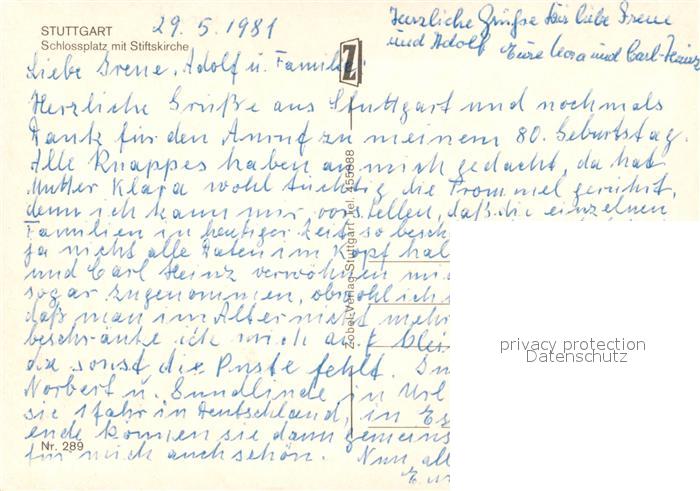 STUTTGART
Schlossplatz mit Stiftskirche
29.5.1981
Herzliche Grüße für liebe Irene
und Adolf Eure Nora und Carl-Heinz
Liebe Irene, Adolf u. Familie.
Herzliche Grüße aus Stuttgart und nochmals
Dank für den Anruf zu meinem 80. Geburtstag.
Alle Knappes haben an mich gedacht, da hat
Mutter Klara wohl tüchtig die Trommel gerührt,
denn ich kann mir vorstellen, daß die einzelnen
Familien in heutiger Zeit so besch
ja nicht alle Daten im Kopf hab
und Carl Heinz verwöhnen mi
sogar zugenommen, obwohl ich
daß man im Alter nicht mehr
beschränke ich mich auf klei
da sonst die Puste fehlt.
Norbert u. Gundlinde in Url
sie 1 Jahr in Deutschland, in
ende können sie dann gemeins
für mich auch schön. Nun all
Nr. 289
Z
Zobel-Verlag Stuttgart Tel. 455688
privacy protection
Datenschutz